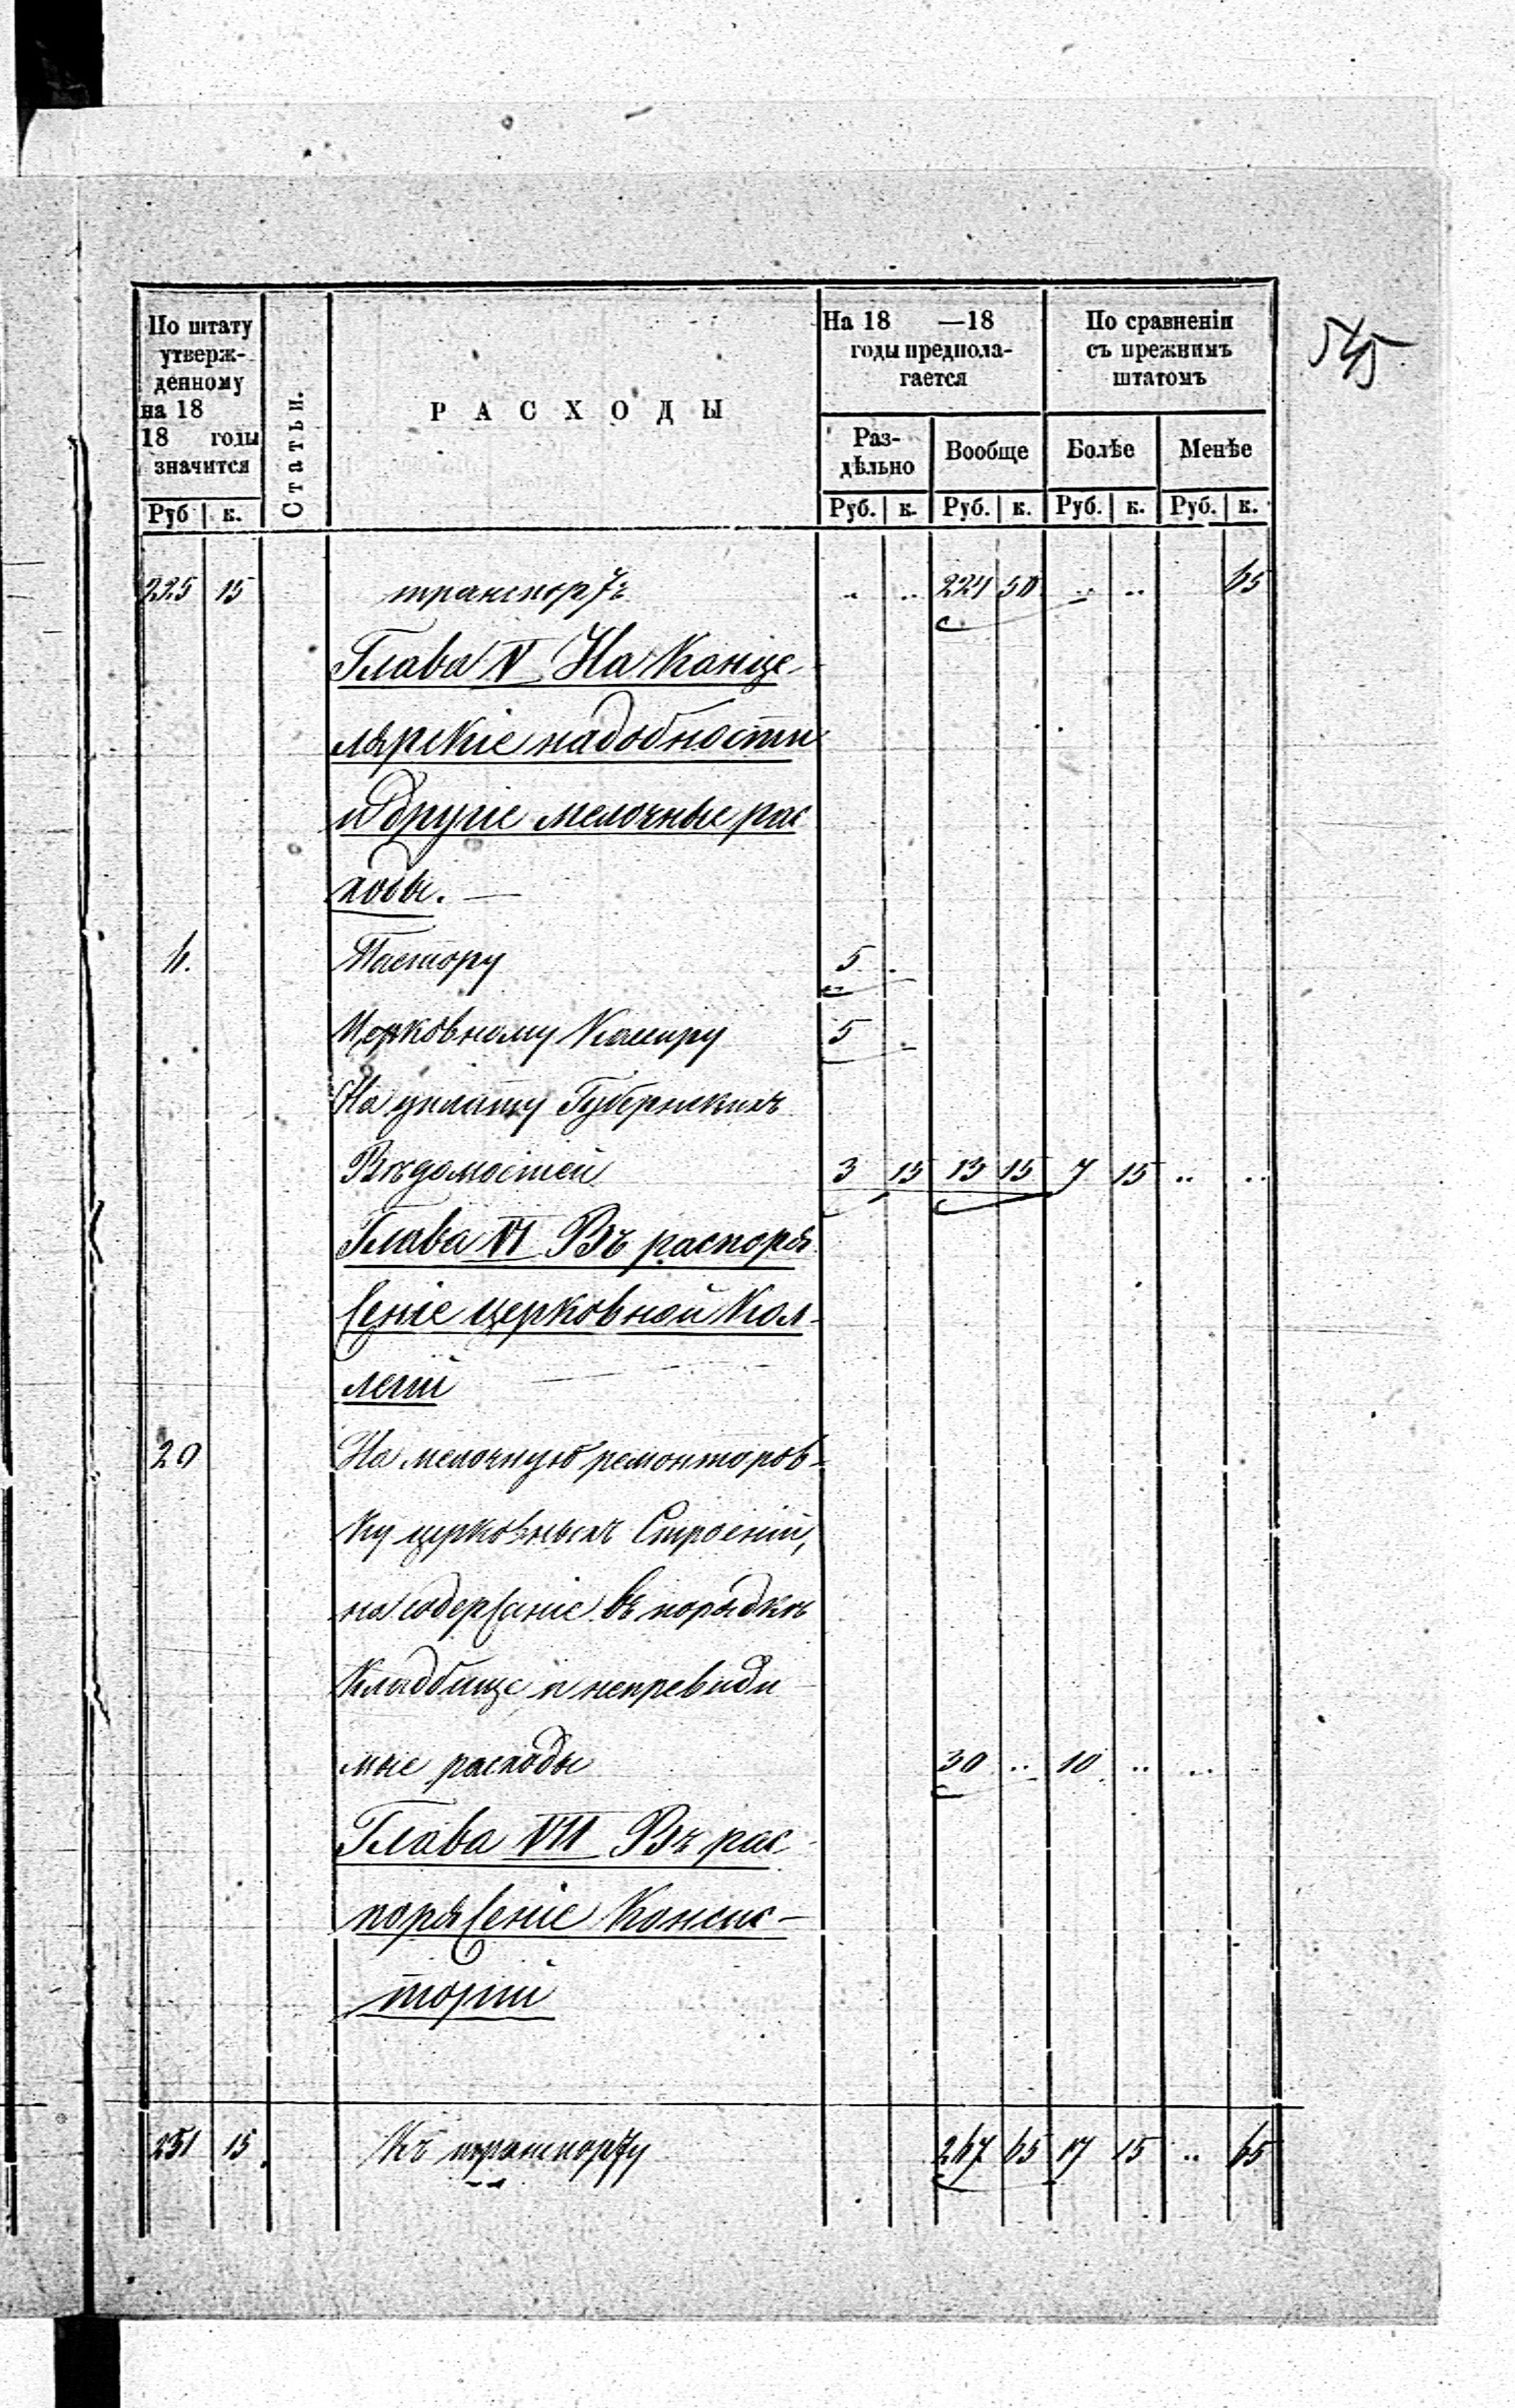 По штату
утверж-
денному
на 18
18 годы
значится
Руб к.
Статьи.
РАСХОДЫ
На 18 —18
годы предпола-
гается
Раз-
дѣльно
Вообще
Руб. к. Руб. к.
По сравненіи
съ прежнимъ
штатомъ
Болѣе Менѣе
Руб. к. Руб. к.
545
225 15 транспортъ .. .. 224 50 .. .. 65
Глава V На Канце-
лярскіе надобности
и другіе мелочные рас
ходы. —
6. Пастору 5 .
Церковному Кассиру 5 .
На уплату Губернскихъ
Вѣдомостей 3 15 13 15 7 15 .. ..
Глава VI Въ распоря
женіе церковной Кол-
легіи
20 На мелочную ремонтиров-
ку церковныхъ Строеній,
на содержаніе въ порядкѣ
Кладбище и непревиди
мые расходы 30 .. 10 .. ..
Глава VII Въ рас-
поряженіе Консис-
торіи
251 15. Къ транспорту 267 65 17 15 .. 65